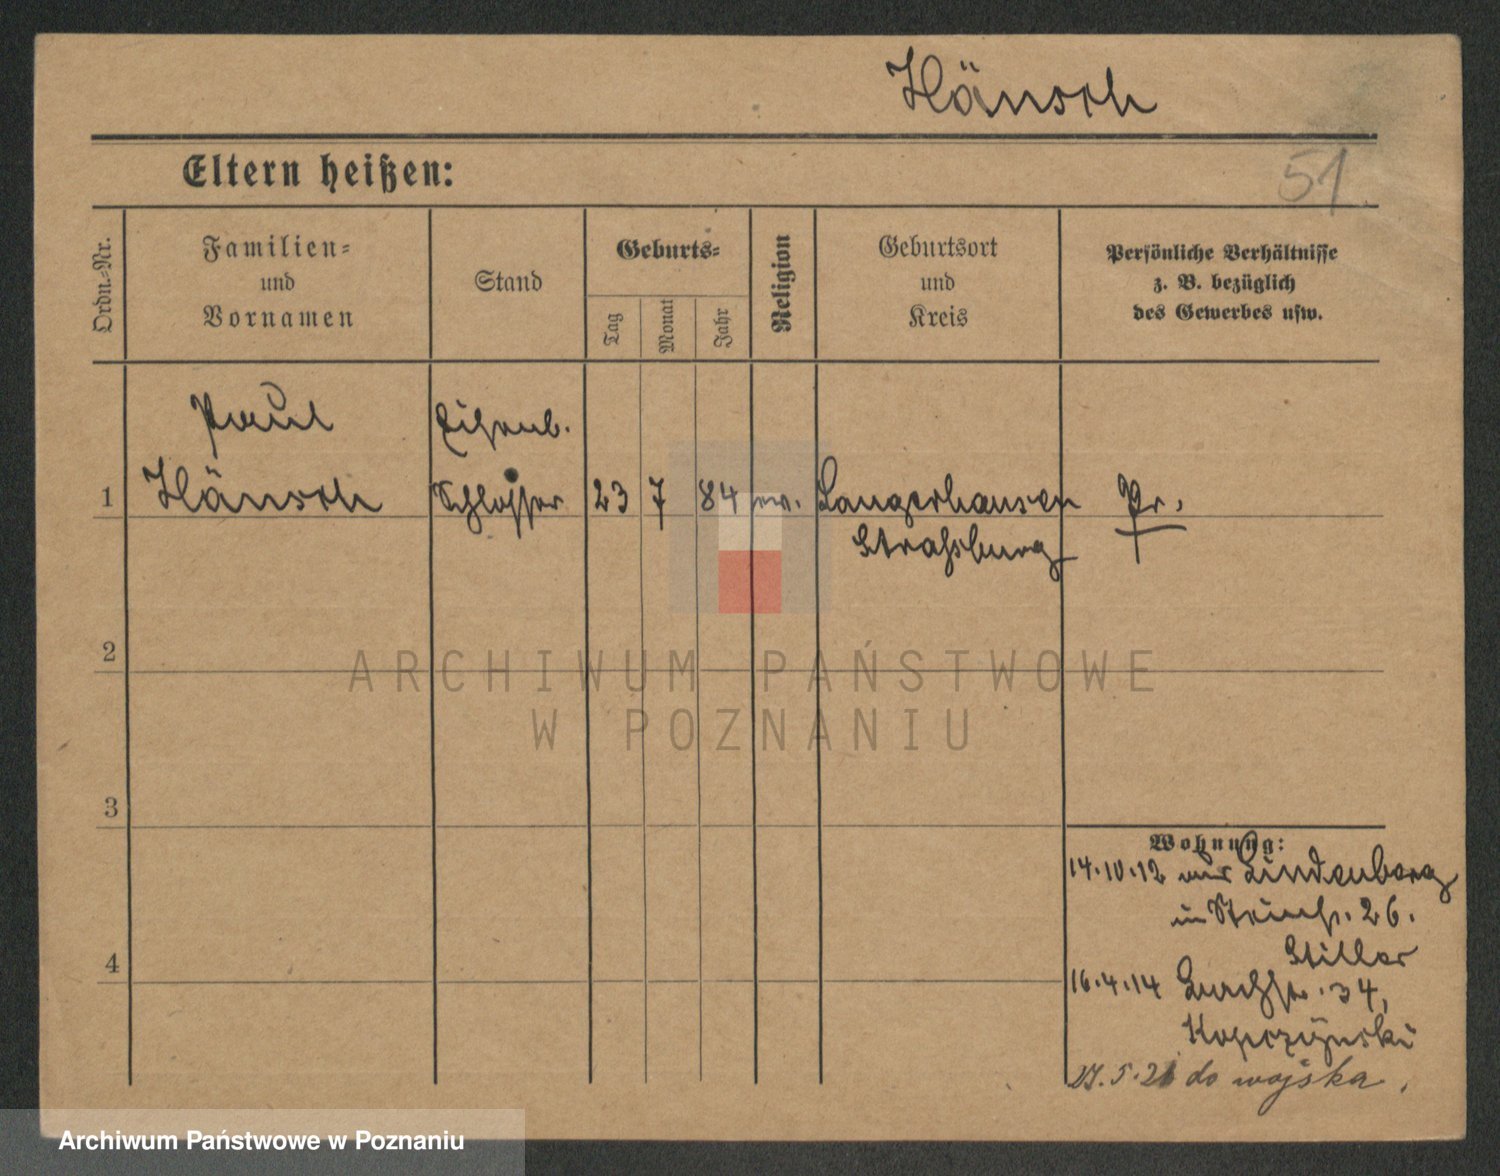 Hänsch
Eltern heißen:
51.
Ordn.-Nr.
Familien-
und
Vornamen
Stand
Geburts-
Tag
Monat
Jahr
Religion
Geburtsort
und
Kreis
Persönliche Verhältnisse
z. B. bezüglich
des Gewerbes usw.
Paul
Eisenb.
1 Hänsch Schlosser 23 7 84 ev. Langerhausen Pr.
Strassburg
2
ARCHIWUM PAŃSTWOWE
W POZNANIU
3
Wohnung:
14.10.12 aus Lindenberg
in 26.
Stiller
4
16.4.14 34,
Kopczynski
27.5.21 do wojska.
Archiwum Państwowe w Poznaniu